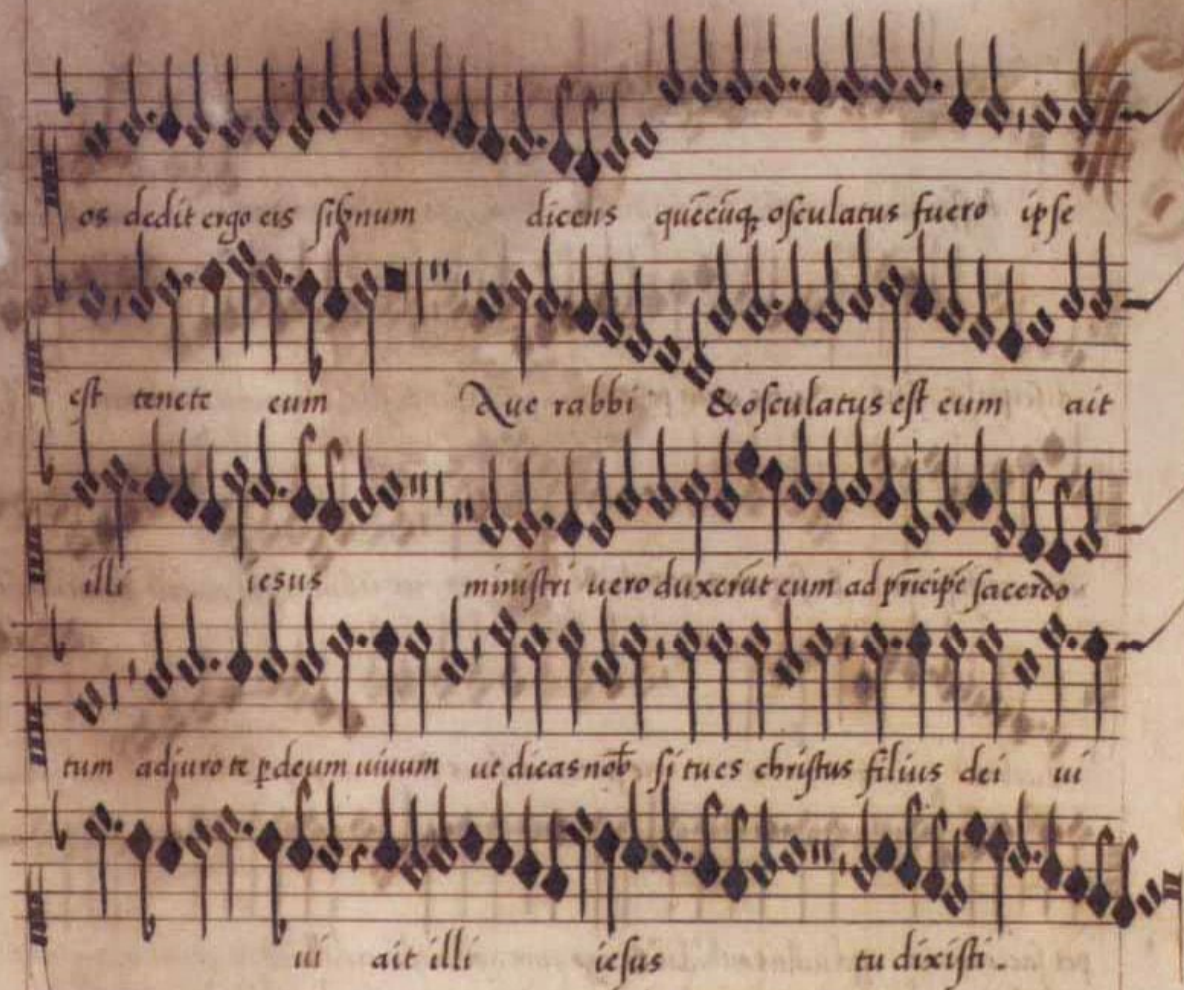 os dedit ergo eis signum dicens quēcūq; osculatus fuero ipse
est tenete eum Aue rabbi & osculatus est eum ait
illi iesus ministri uero duxerūt eum ad prīcipē sacerdo
tum adjuro te ꝑ deum uiuum ut dicas nob̄ si tu es christus filius dei ui
ui ait illi iesus tu dixisti.